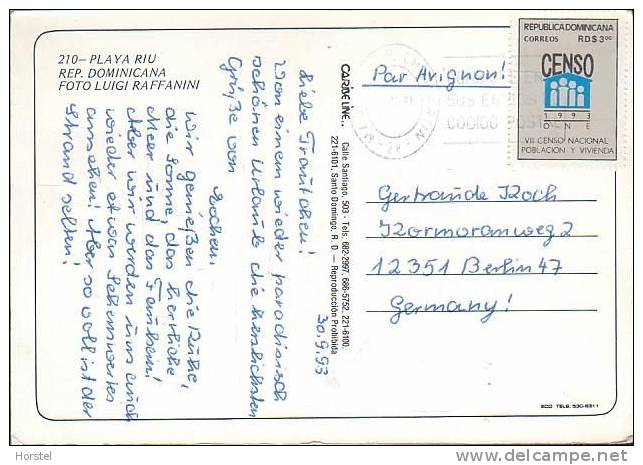 210– PLAYA RIU
REP. DOMINICANA
FOTO LUIGI RAFFANINI
30.9.93
Liebe Traudchen!
Von einem wieder paradisisch
schönen Urlaub die herzlichsten
Grüße von
Jochen.
Wir genießen die Ruhe,
die Sonne, das herrliche
Meer und das Tauchen!
Aber wir werden uns auch
wieder etwas Sehenswertes
ansehen! Aber so voll ist der
Strand selten!
CARIBELINE.. Calle Santiago, 503 - Tels. 682-2997, 686-5752, 221-6100,
221-6101, Santo Domingo, R. D. — Reproducción Prohibida
REPUBLICA DOMINICANA
CORREOS RD$ 3.00
CENSO
1993
ONE
VII CENSO NACIONAL
POBLACION Y VIVIENDA
CODIGO POSTAL
Par Avignon!
Gertraude Koch
Kormoranweg 2
12351 Berlin 47
Germany!
ECO TELS. 530-6311
delcampe.net
Horstel